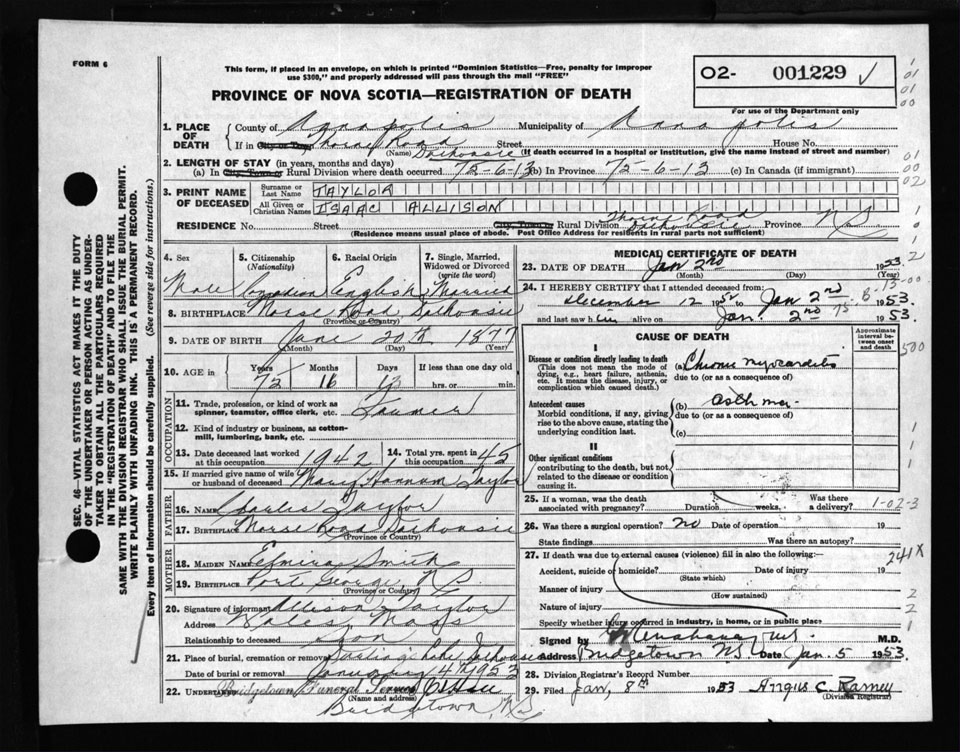 FORM 6
This form, if placed in an envelope, on which is printed "Dominion Statistics—Free, penalty for improper
use $300," and properly addressed will pass through the mail "FREE"
O2- 001229 ✓
For use of the Department only
PROVINCE OF NOVA SCOTIA—REGISTRATION OF DEATH
1. PLACE OF DEATH
County of Annapolis Municipality of Annapolis
If in City or Town Road Street House No.
(Name) Dalhousie (If death occurred in a hospital or institution, give the name instead of street and number)
2. LENGTH OF STAY (in years, months and days)
(a) In City, Town or Rural Division where death occurred 75-6-13 (b) In Province 75-6-13 (c) In Canada (if immigrant)
3. PRINT NAME OF DECEASED
Surname or Last Name TAYLOR
All Given or Christian Names ISAAC ALLISON
RESIDENCE No. Street City, Town or Rural Division Thorne Road Dalhousie Province N.S.
(Residence means usual place of abode. Post Office Address for residents in rural parts not sufficient)
4. Sex
Male
5. Citizenship
(Nationality)
Canadian
6. Racial Origin
English
7. Single, Married,
Widowed or Divorced
(write the word)
Married
8. BIRTHPLACE Morse Road Dalhousie
(Province or Country)
9. DATE OF BIRTH June 20th 1877
(Month) (Day) (Year)
10. AGE in Years 75 Months Days 13 If less than one day old
hrs. or min.
OCCUPATION
11. Trade, profession, or kind of work as
spinner, teamster, office clerk, etc. Farmer
12. Kind of industry or business, as cotton-
mill, lumbering, bank, etc.
13. Date deceased last worked
at this occupation 1942
14. Total yrs. spent in
this occupation 45
15. If married give name of wife
or husband of deceased Mary Hannam Taylor
FATHER
16. Name Charles Taylor
17. Birthplace Morse Road Dalhousie
(Province or Country)
MOTHER
18. Maiden Name Elmira Smith
19. Birthplace Port George N.S.
(Province or Country)
20. Signature of informant Allison Taylor
Address Wales Mass
Relationship to deceased Son
21. Place of burial, cremation or removal Lake Dalhousie
Date of burial or removal January 4 1953
22. UNDERTAKER Bridgetown Funeral Service
(Name and address)
Bridgetown, N.S.
MEDICAL CERTIFICATE OF DEATH
23. DATE OF DEATH Jan 2nd 1953
(Month) (Day) (Year)
24. I HEREBY CERTIFY that I attended deceased from:
December 12 1952 Jan 2nd 1953
and last saw him alive on Jan. 2nd 1953.
CAUSE OF DEATH
Approximate
interval between
onset and death
I
Disease or condition directly leading to death
(This does not mean the mode of
dying, e.g., heart failure, asthenia,
etc. It means the disease, injury, or
complication which caused death.)
(a) Chronic myocarditis
due to (or as a consequence of)
Antecedent causes
Morbid conditions, if any, giving
rise to the above cause, stating the
underlying condition last.
(b) asthma
due to (or as a consequence of)
(c)
II
Other significant conditions
contributing to the death, but not
related to the disease or condition
causing it.
25. If a woman, was the death
associated with pregnancy? Duration weeks. Was there
a delivery?
26. Was there a surgical operation? no Date of operation 19
State findings Was there an autopsy?
27. If death was due to external causes (violence) fill in also the following:—
Accident, suicide or homicide? Date of injury 19
(State which)
Manner of injury
(How sustained)
Nature of injury
Specify whether injury occurred in industry, in home, or in public place
Signed by M.D.
Address Bridgetown N.S. Date Jan. 5 1953
28. Division Registrar's Record Number
29. Filed Jan, 8th 1953 Angus C. Ramey
(Division Registrar)
1-02-3
241X
500
SEC. 46—VITAL STATISTICS ACT MAKES IT THE DUTY
OF THE UNDERTAKER OR PERSON ACTING AS UNDER-
TAKER TO OBTAIN ALL THE PARTICULARS REQUIRED
IN THE "REGISTRATION OF DEATH" AND TO FILE THE
SAME WITH THE DIVISION REGISTRAR WHO SHALL ISSUE THE BURIAL PERMIT.
WRITE PLAINLY WITH UNFADING INK. THIS IS A PERMANENT RECORD.
Every item of information should be carefully supplied. (See reverse side for instructions.)